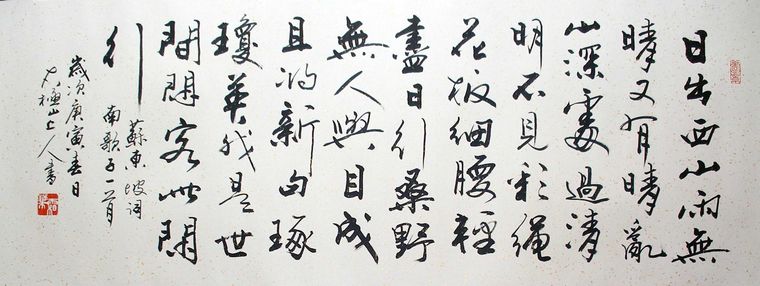 日出西山雨無
晴又有晴亂
山深處過清
明不見彩繩
花板細腰輕
盡日行桑野
無人與目成
且將新句琢
瓊英我是世
間閑客此閑
行
蘇東坡词
南歌子一首
歲次庚寅春日
山上人書